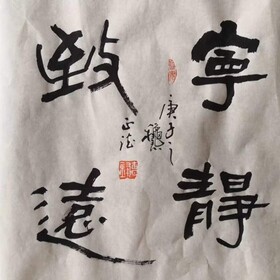 寧靜
致遠
庚子之
龝
正法